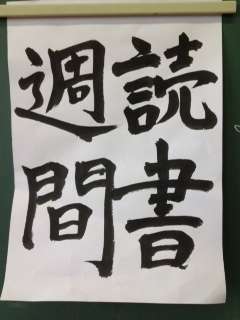 読書
週間